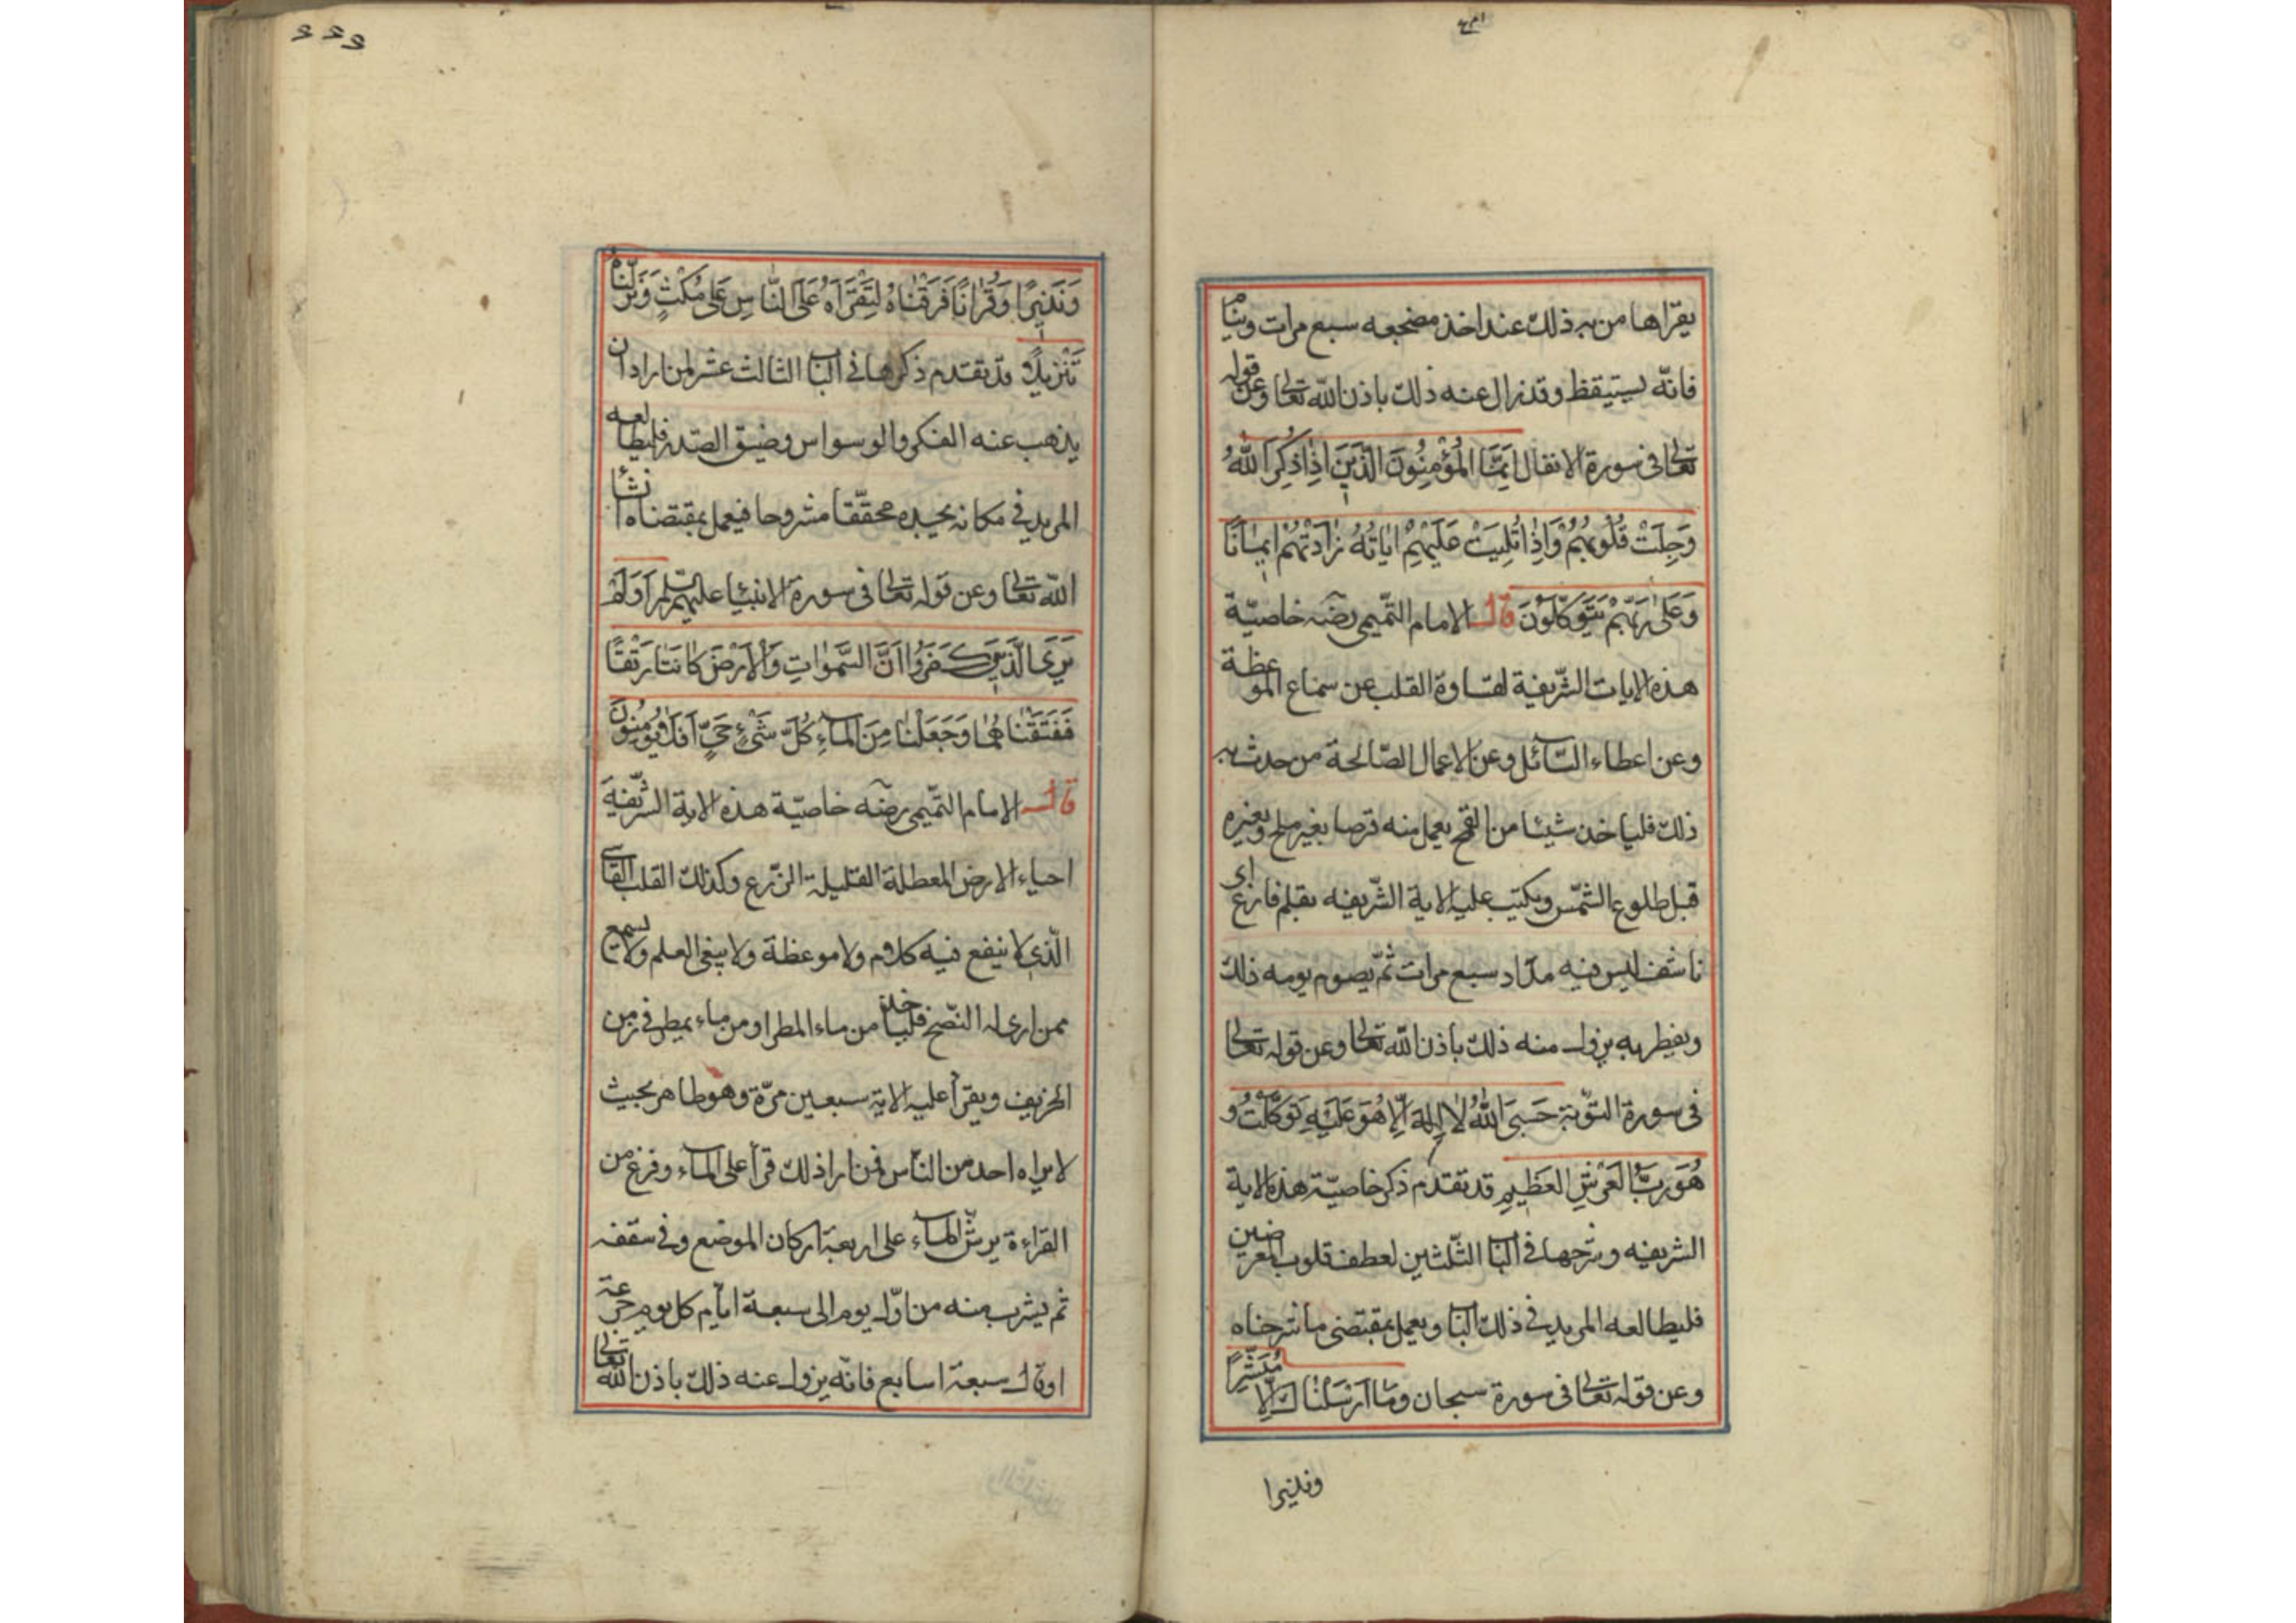 يقرأها من به ذلك عند اخذ مضجعه سبع مرات وينام
فانّه يستيقظ وقد زال عنه ذلك باذن الله تعالى وعن قوله
تعالى فى سورة الانفال اِنَّمَا الْمُؤْمِنُونَ الَّذِينَ اِذَا ذُكِرَ اللّٰهُ
وَجِلَتْ قُلُوبُهُمْ وَاِذَا تُلِيَتْ عَلَيْهِمْ اٰيَاتُهُ زَادَتْهُمْ اِيمَانًا
وَعَلٰى رَبِّهِمْ يَتَوَكَّلُونَ قال الامام التّميمى رضٓه خاصيّة
هذه الايات الشّريفة لقساوة القلب عن سماع الموعظة
وعن اعطاء السّائل وعن الاعمال الصّالحة من حدث به
ذلك فلياخذ شيئا من القمح يعمل منه قرصا بغير ملح وبغيره
قبل طلوع الشّمس ويكتب عليه الاية الشّريفه بقلم فارغ اى
ناشف ليس فيه مداد سبع مرات ثمّ يصوم يومه ذلك
ويفطر به يزول منه ذلك باذن الله تعالى وعن قوله تعالى
فى سورة التوّبة حَسْبِىَ اللّٰهُ لَا اِلٰهَ اِلَّا هُوَ عَلَيْهِ تَوَكَّلْتُ وَ
هُوَ رَبُّ الْعَرْشِ الْعَظِيمِ قد تقدم ذكر خاصيّة هذه الاية
الشريفه وشرحها فى الباب الثّلثين لعطف قلوب المعرضين
فليطالعه المريد فى ذلك الباب ويعمل بمقتضى ما شرحناه
وعن قوله تعالى فى سورة سبحان وَمَا اَرْسَلْنَاكَ اِلَّا مُبَشِّرًا
ونذيرا
٢٢٢
وَنَذِيرًا وَقُرْاٰنًا فَرَقْنَاهُ لِتَقْرَاَهُ عَلَى النَّاسِ عَلٰى مُكْثٍ وَنَزَّلْنَاهُ
تَنْزِيلًا وقد تقدم ذكرها فى الباب الثالث عشر لمن اراد ان
يذهب عنه الفكر والوسواس وضيق الصّدر فليطالعه
المريد فى مكانه يجده محقّقا مشروحا فيعمل بمقتضاه انشا
الله تعالى وعن قوله تعالى فى سورة الانبيا عليهم السّلم اَوَلَمْ
يَرَى الَّذِينَ كَفَرُوا اَنَّ السَّمٰوَاتِ وَالْاَرْضَ كَانَتَا رَتْقًا
فَفَتَقْنَاهُمَا وَجَعَلْنَا مِنَ الْمَاءِ كُلَّ شَىْءٍ حَىٍّ اَفَلَا يُؤْمِنُونَ
قال الامام التّميمى رضٓه خاصيّة هذه الاية الشّريفة
احياء الارض المعطلة القليلة الزّرع وكذلك القلب القاسى
الّذى لا ينفع فيه كلام ولا موعظة ولا يبغى العلم ولا يسمع
ممن ارى له النّصح فلياخذ من ماء المطر او من ماء يمطر فى زمن
الخريف ويقرأ عليه الاية سبعين مرّة وهو طاهر بحيث
لا يراه احد من النّاس فمن اراد ذلك قرأ على الماء وفرغ من
القراءة يرشّ الماء على اربعة اركان الموضع وفى سقفه
ثم يشرب منه من اوّل يوم الى سبعة ايّام كل يوم جرعة
او قال سبعة اسابع فانّه يزول عنه ذلك باذن الله تعالى